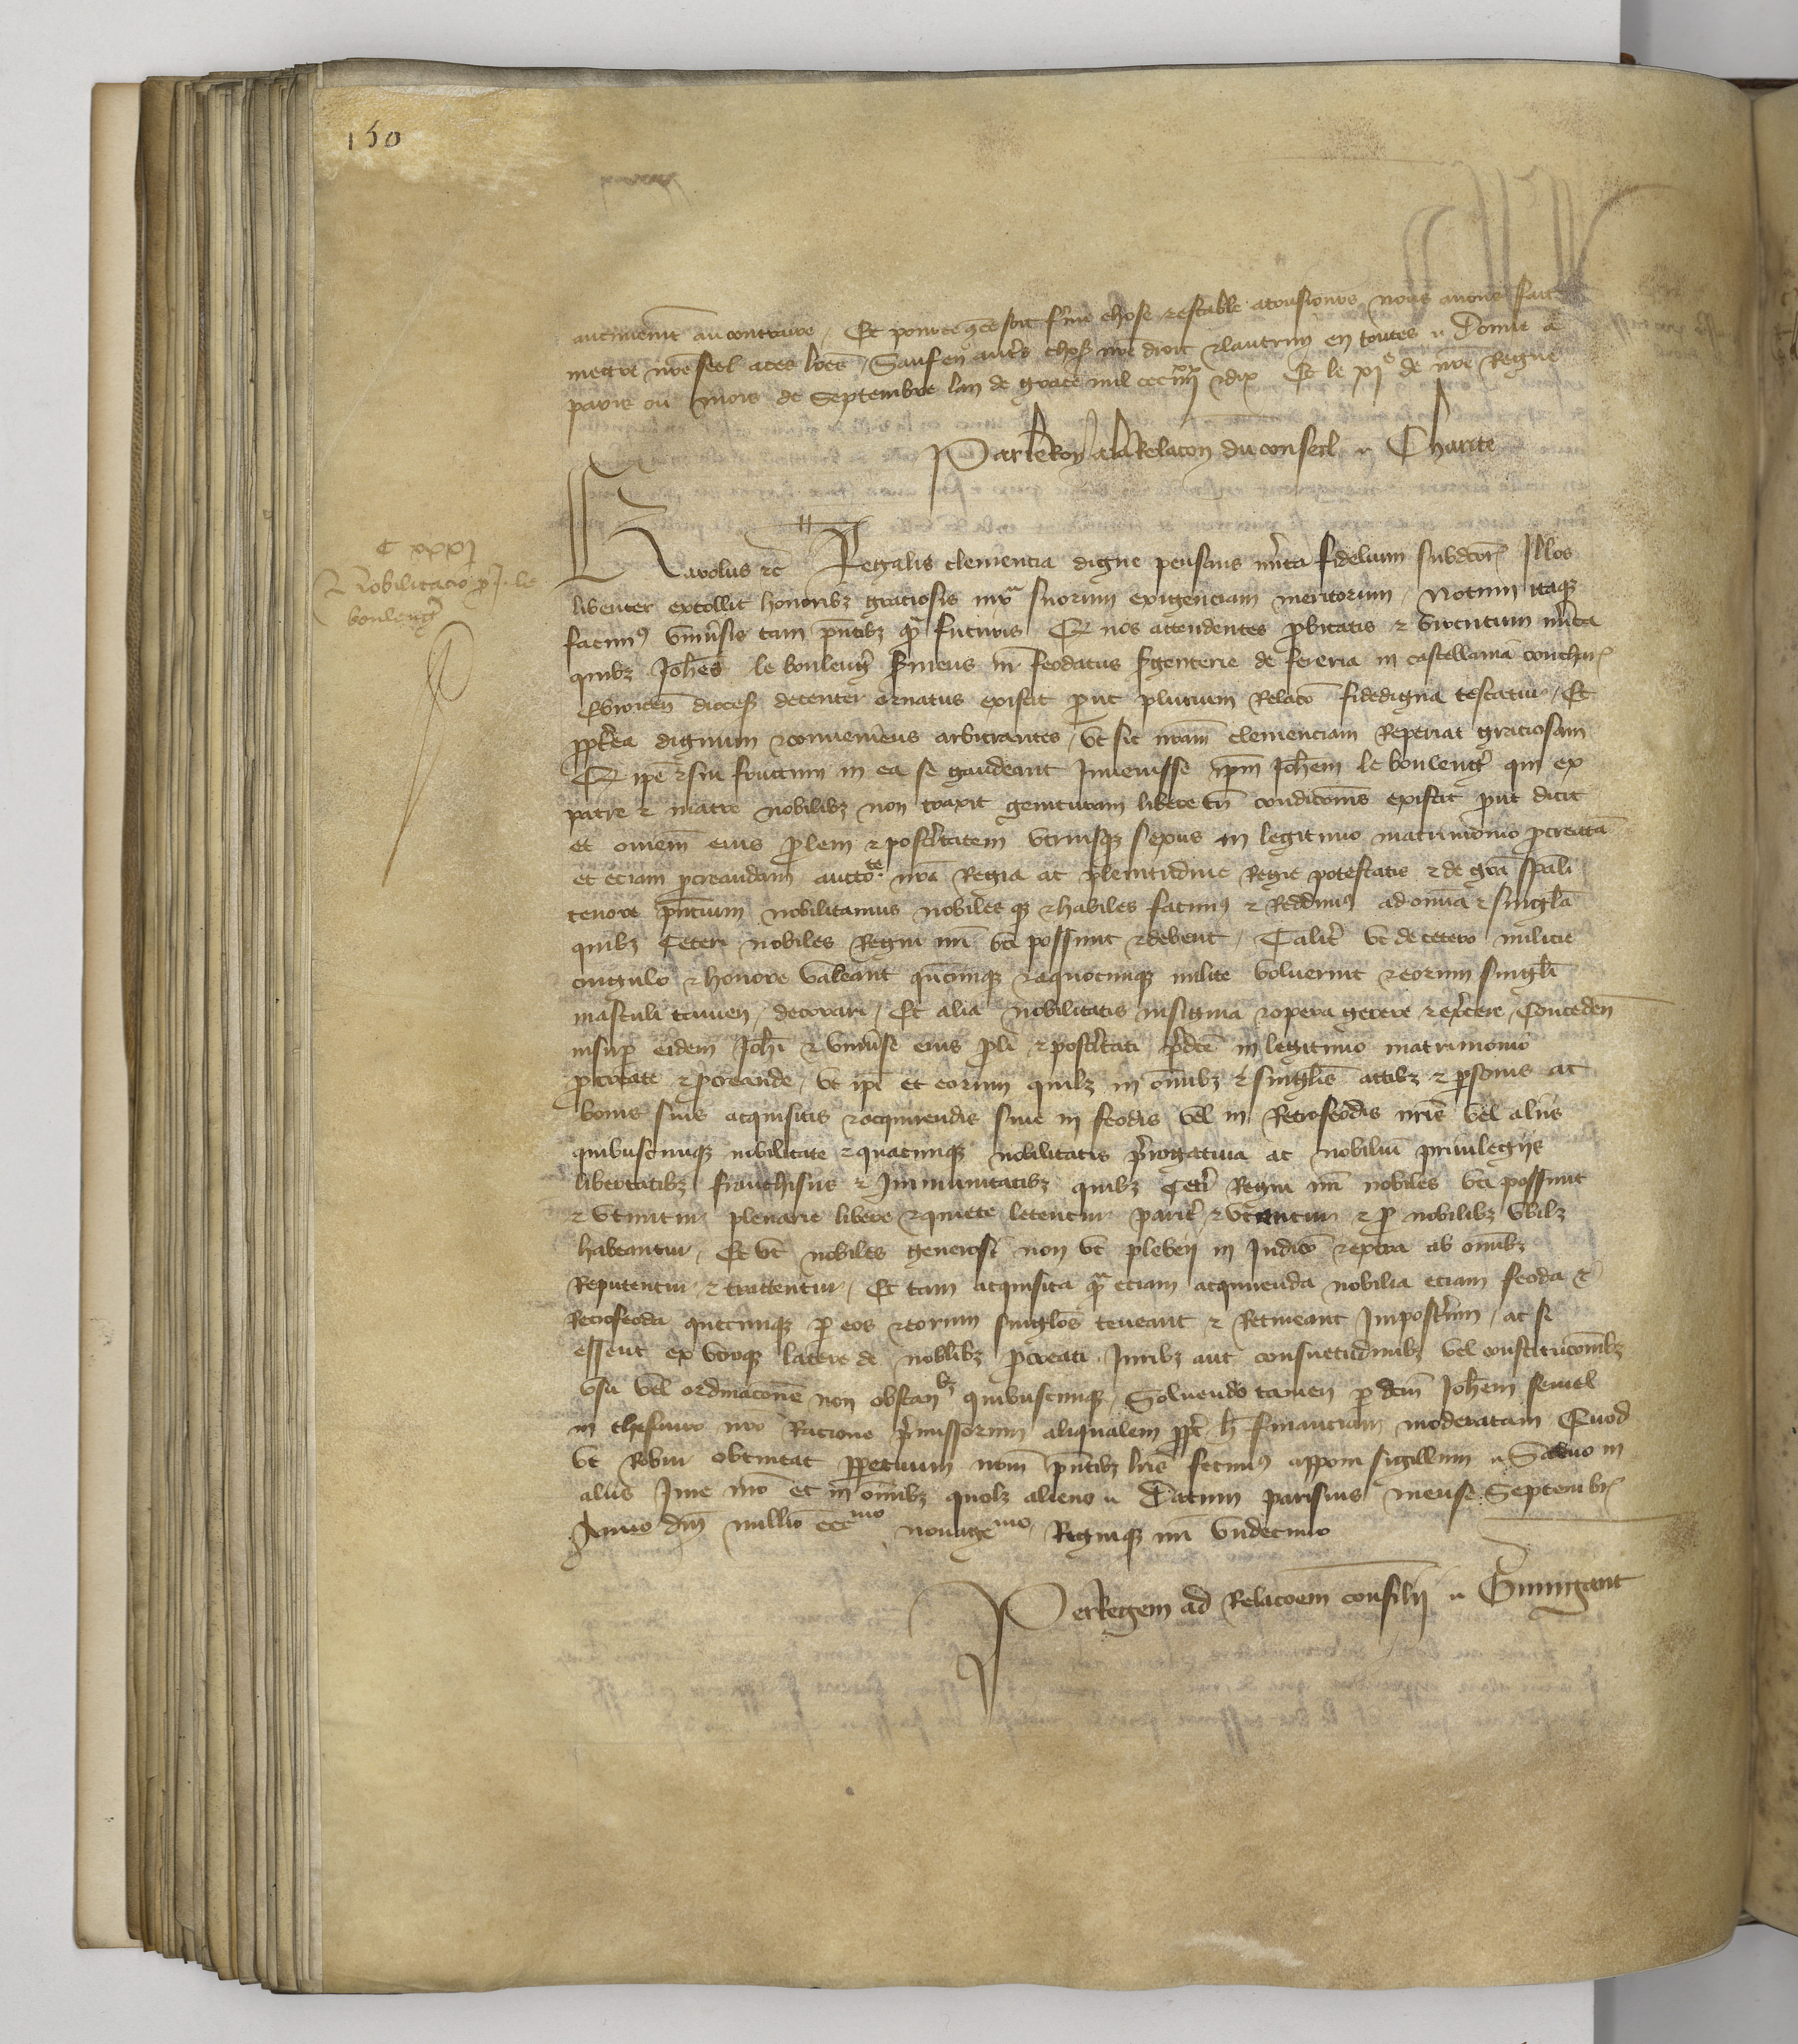 130
aucunement au contraire / Et pource que ce soit ferme chose et estable a tousiours nous auons fait
mettre nre seel a ces lres / Sauf en autres choses nre droit et lautruy en toutes Donne a
paris ou mois de Septembre lan de grace mil ccc iiijxx et dix Et le xje de nre Regne
Par le Roy a la Relacon du conseil Charite
C xxxj
Nobilitacio p J. le
boulengr
Karolus etc Regalis clemencia digne pensans merita fidelium subditor Illos
libenter extollit honoribz graciosis iuxta suorum exigenciam meritorum / Notum itaqz
facimus vniuersis tam pntibz qua futuris Q nos attendentes probitatis et virtutum merita
quibz Johes le boulengr feodatus de in castellania conchar
Ebroicen dioces decenter ornatus existit prout plurium Relaco fidedigna testatur / Et
ppterea dignum et conueniens arbitrantes / vt sic nram clemenciam Reperiat graciosam
Q ipe et sui fructum in ea se gaudeant Inuenisse ipm Johem le boulengr qui ex
patre et matre nobilibz non traxit genituram libere tn condiconis existit put dicit
et omem eius prolem et posteritatem vtriusqz sexus in legitimo matrimonio procreatā
et eciam procreandam auctote nra Regia ac plenitudine Regie potestatis et de gra spali
tenore pntium nobilitamus nobiles qz et habiles facimus et Reddimus ad omnia et singula
quibz Ceteri nobiles Regni nri vti possunt et debent / Taliter vt de cetero milicie
cingulo et honore valeant qncunqz et a quocunqz milite voluerint et eorum singli
masculi tamen / decorari / Et alia nobilitatis insignia et opera gerere et exercere / Conceden
insup eidem Johi et vniuerse eius proli et posteritati predce in legitimo matrimonio
procreate et procreande / vt ipi et eorum quilz in omibz et singulis actibz et personis ac
bonis suis acquisitis et acquirendis siue in feodis vel in Retrofeodis nris vel aliis
quibuscunqz nobilitate et quacunqz nobilitatis prerogatiua ac nobiliu priuilegijs
libertatibz franchisiis et Immunitatibz quibz Ceteri Regni nri nobiles vti possunt
et vtuntur plenarie libere et quiete letentur pariter et vtantur et pro nobilibz vbilz
habeantur / Et vt nobiles generosi non vt plebeij in Iudico et extra ab omibz
Reputentur et tractentur / Et tam acquisita qua eciam acquirenda nobilia eciam feoda et
Retrofeoda quecunqz p eos et eorum singlos teneant et Retineant Imposterum / ac si
essent ex vtroqz latere de nobilibz procreati Iuribz aut consuetudinibz vel constitucoibz
vsu vel ordinacone non obstanbz quibuscunqz / Soluendo tamen p dcm Johem semel
in thesauro nro Racione premissorum aliqualem ppter h financiam moderatam Quod
vt Robur obtineat ppetuum nrm pntibz lris fecimus apponi sigillum Saluo in
aliis Iure nro et in omibz quolz alieno Datum parisius mense Septembr
Anno dni millio cccmo nonagemo Regniqz nri vndecimo
Per Regem ad Relacoem consilij Guingant